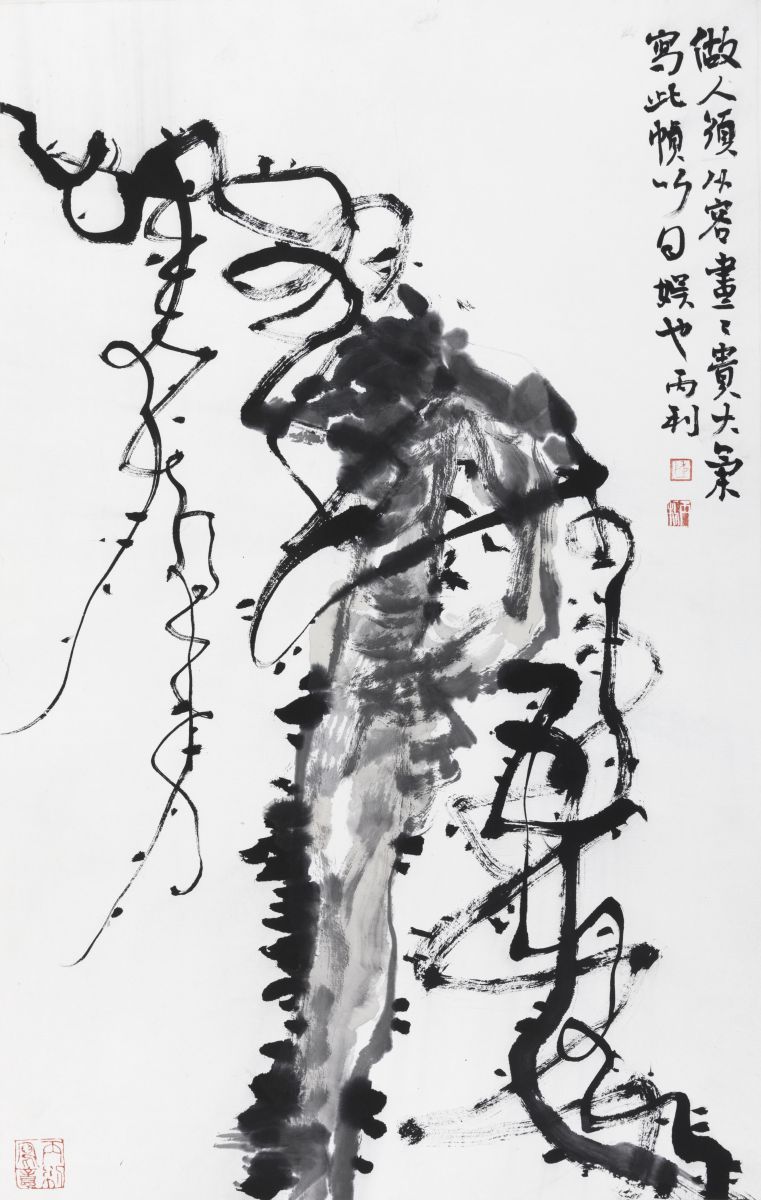 做人須从容畫畫貴大氣
寫此幀以自娱也丙利